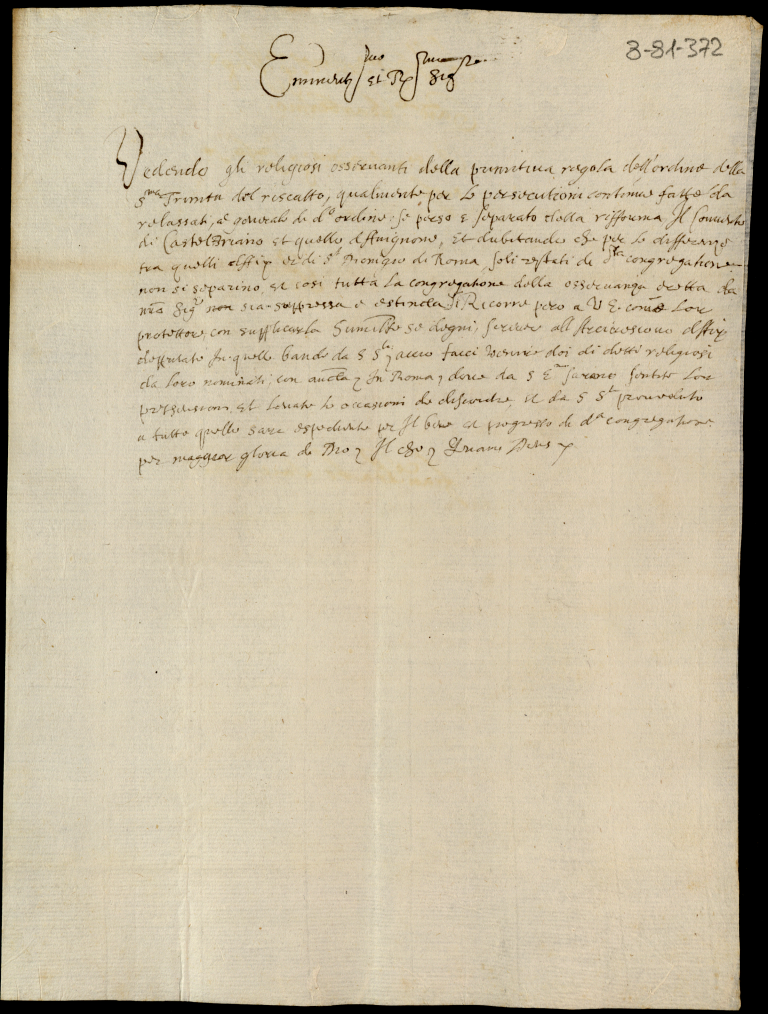 8-81-372
Eminentmo et Rmo Sigre
Vedendo gli religiosi osservanti della primitiva regola dell'ordine della
Sma Trinità del riscatto, qualmente per le persecutioni continue fatte da
relassati, al generale di do ordine, se perso e separato della rifforma Il Convento
di Castel Briano et quello d'Avignone, Et dubitando che per le differenze
tra quelli d'Aix et di So Dionigio di Roma soli restati di dta congregatione
non si separino, et cosi tutta la congregatione della osservanza eretta da
nro Sigre non sia suppressa e estincta, Ricorre pero a V E come Lor
protettore, con supplicarla humilte se degni, scrivere all Arcivescovo d'Aix
deputato In quelle bande da S Sta, accio facci venire doi di detti religiosi
da loro nominati, con aucta, In Roma, dove da S Ema saranno sentite Lor
pretensioni, Et levate le occasioni de discordie, et da S Sta proveduto
a tutto quello sara espediente per Il bene et progresso di da congregatione
per maggior gloria de Dio, Il che, Quam Deus